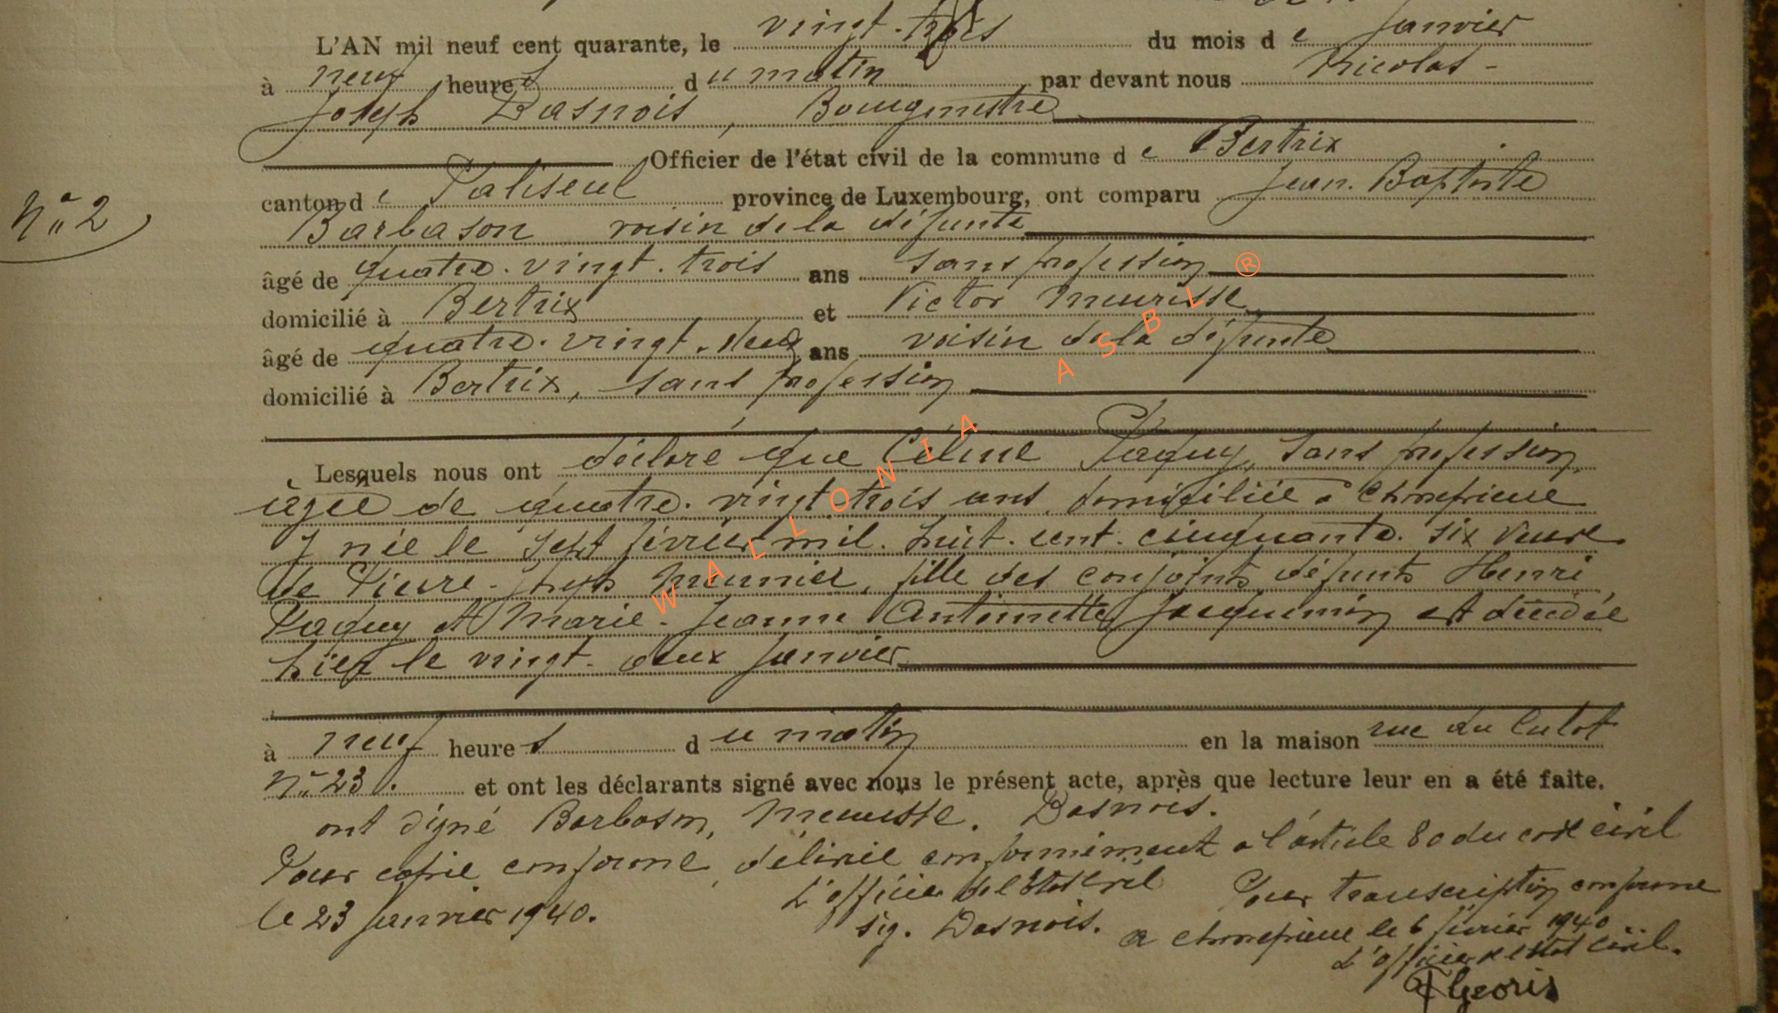 L'AN mil neuf cent quarante, le vingt-trois du mois de Janvier
à neuf heures du matin par devant nous Nicolas-
Joseph Dasnois, Bourgmestre
Officier de l'état civil de la commune de Bertrix
N° 2
canton de Paliseul province de Luxembourg, ont comparu Jean-Baptiste
Barbason voisin de la défunte
âgé de quatre-vingt-trois ans sans profession
domicilié à Bertrix et Victor Meurisse
âgé de quatre-vingt-deux ans voisin de la défunte
domicilié à Bertrix, sans profession
Lesquels nous ont déclaré que Céline Paquy, sans profession,
âgée de quatre-vingt trois ans, domiciliée à
y née le sept février mil-huit-cent-cinquante-six veuve
de Pierre-Joseph Meunier, fille des conjoints défunts Henri
Paquy et Marie-Jeanne Antoinette Jacquemin est décédée
hier le vingt-deux janvier
à neuf heures du matin en la maison rue du Culot
N° 23. et ont les déclarants signé avec nous le présent acte, après que lecture leur en a été faite.
ont signé Barbason, Meurisse. Dasnois.
Pour copie conforme, délivrée conformément à l'article 80 du code civil
le 23 janvier 1940. L'officier de l'Etat civil Pour transcription conforme
sig. Dasnois. à le 6 février 1940
L'officier de l'état civil.
Theoris
WALLONIA ASBL ®